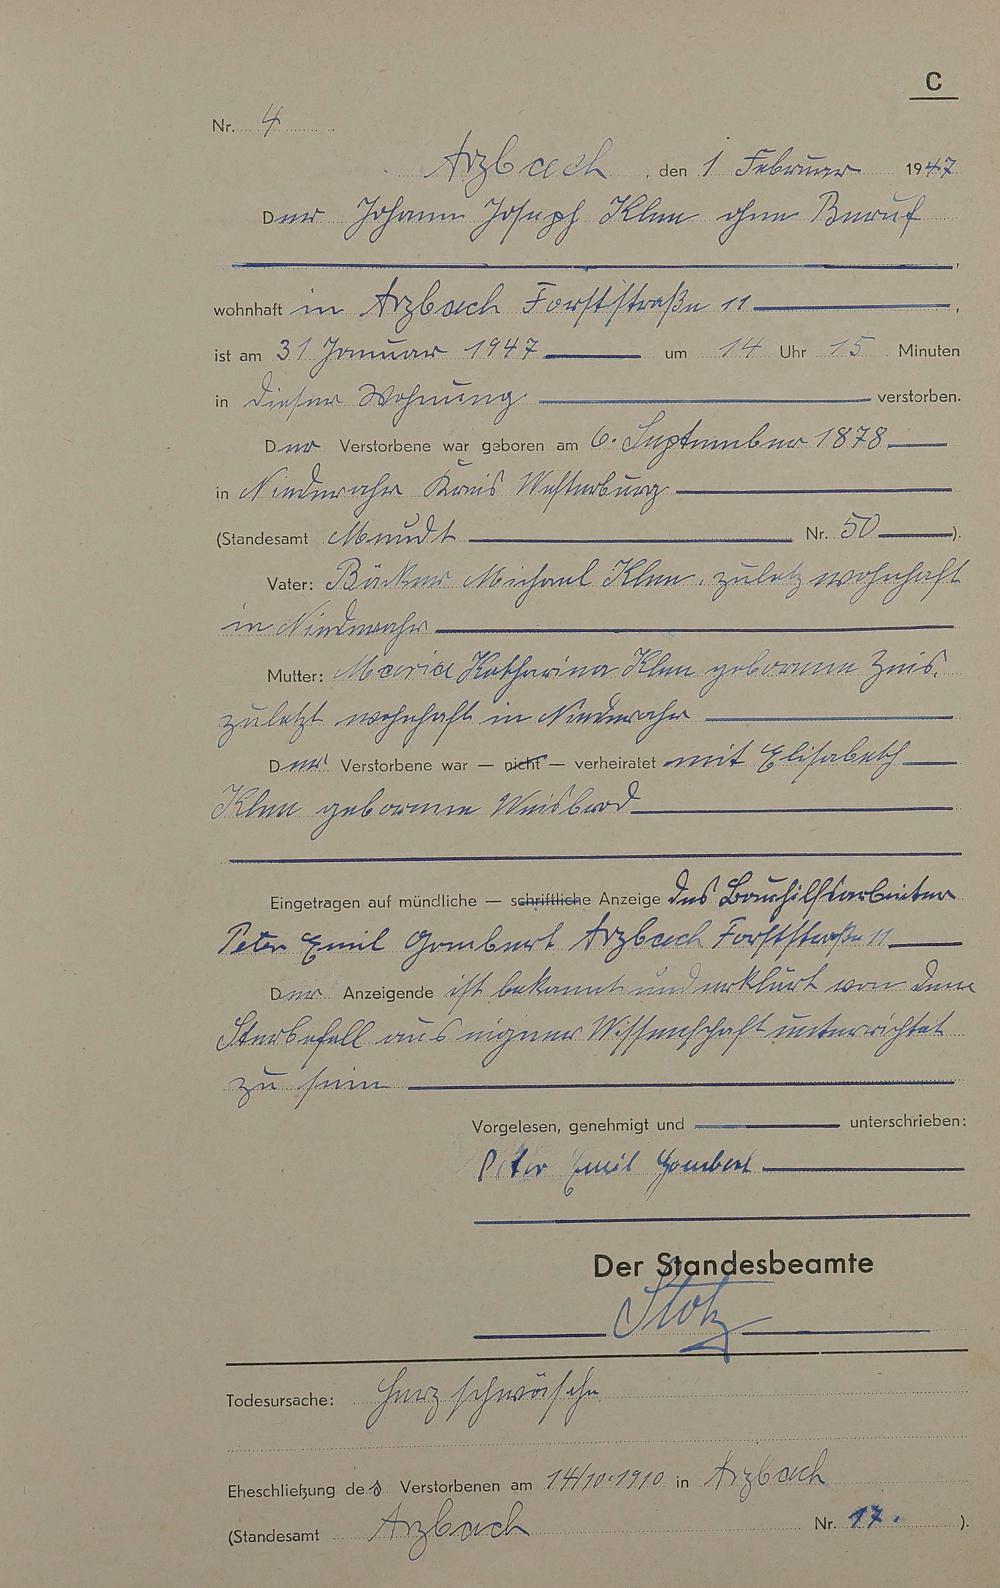 C
Nr. 4
Arzbach, den 1 Februar 1947
Der Johann Joseph Klee ohne Beruf
,
wohnhaft in Arzbach Forststraße 11,
ist am 31 Januar 1947 um 14 Uhr 15 Minuten
in dieser Wohnung verstorben.
Der Verstorbene war geboren am 6. September 1878
in Niederahr Kreis Westerburg
(Standesamt Meudt Nr. 50).
Vater: Bäcker Michael Klee, zuletz wohnhaft
in Niederahr
Mutter: Maria Katharina Klee geborene Zeis,
zuletzt wohnhaft in Niederahr
Der Verstorbene war — nicht — verheiratet mit Elisabeth
Klee geborene Weisbrod
Eingetragen auf mündliche — schriftliche Anzeige des Bauhilfsarbeiter
Peter Emil Gombert Arzbach Forststraße 11
Der Anzeigende ist bekannt und erklärt von dem
Sterbefall aus eigener Wissenschaft unterrichtet
zu sein
Vorgelesen, genehmigt und unterschrieben:
Peter Emil Gombert
Der Standesbeamte
Stotz
Todesursache: Herzschwäche
Eheschließung des Verstorbenen am 14/10.1910 in Arzbach
(Standesamt Arzbach Nr. 17. ).